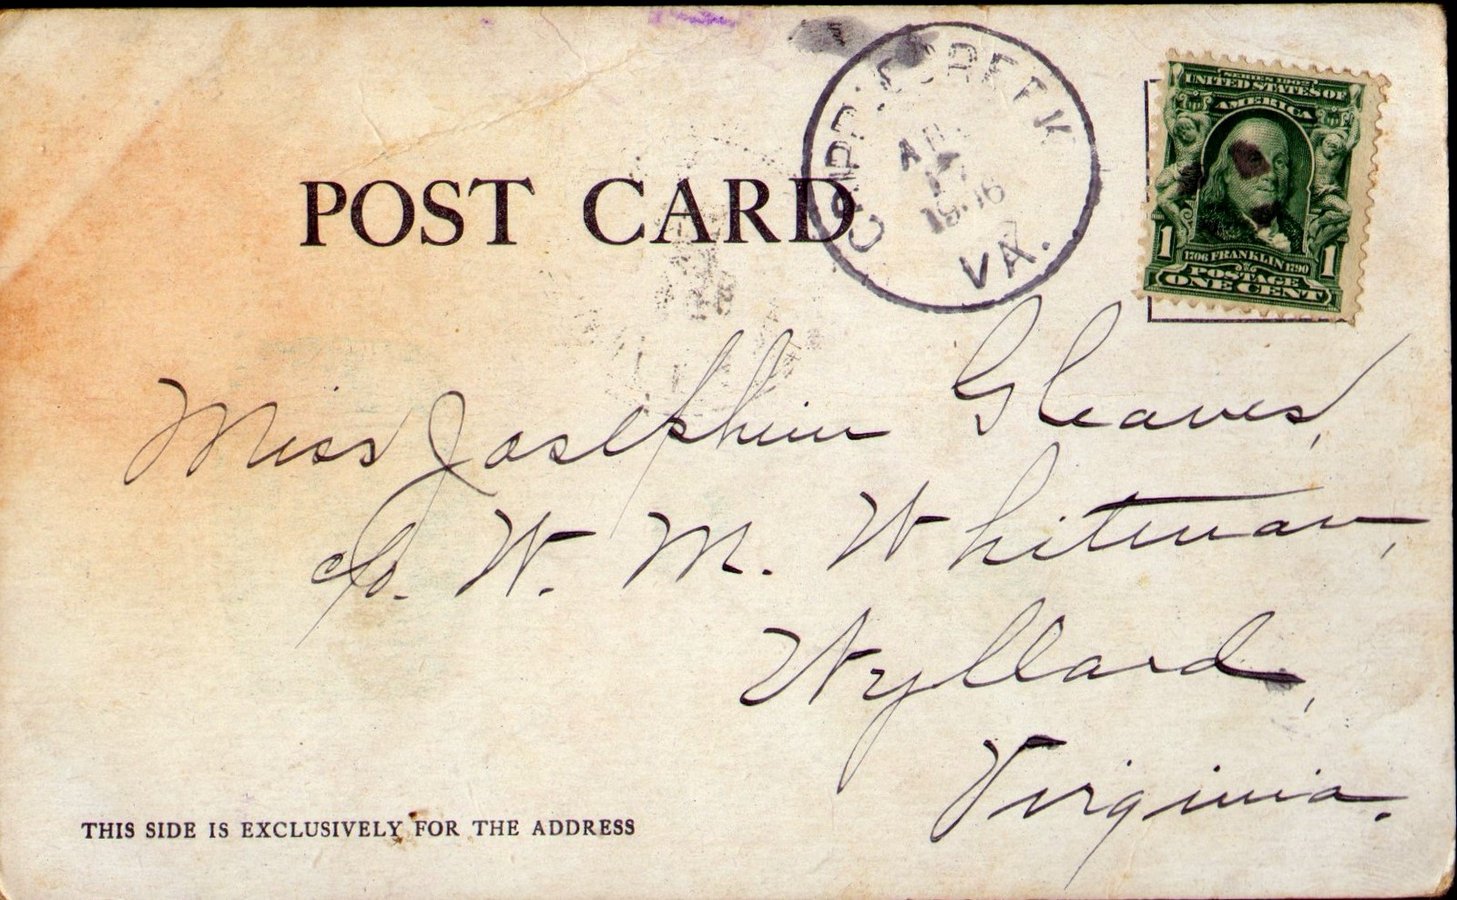 SERIES 1902
UNITED STATES OF
AMERICA
1 1
1706 FRANKLIN 1790
POSTAGE
ONE CENT
CRIPPLE CREEK
1906
VA.
POST CARD
Miss Josephine Gleaves,
c/o. W. M. Whitman,
Wyllard,
Virginia.
THIS SIDE IS EXCLUSIVELY FOR THE ADDRESS